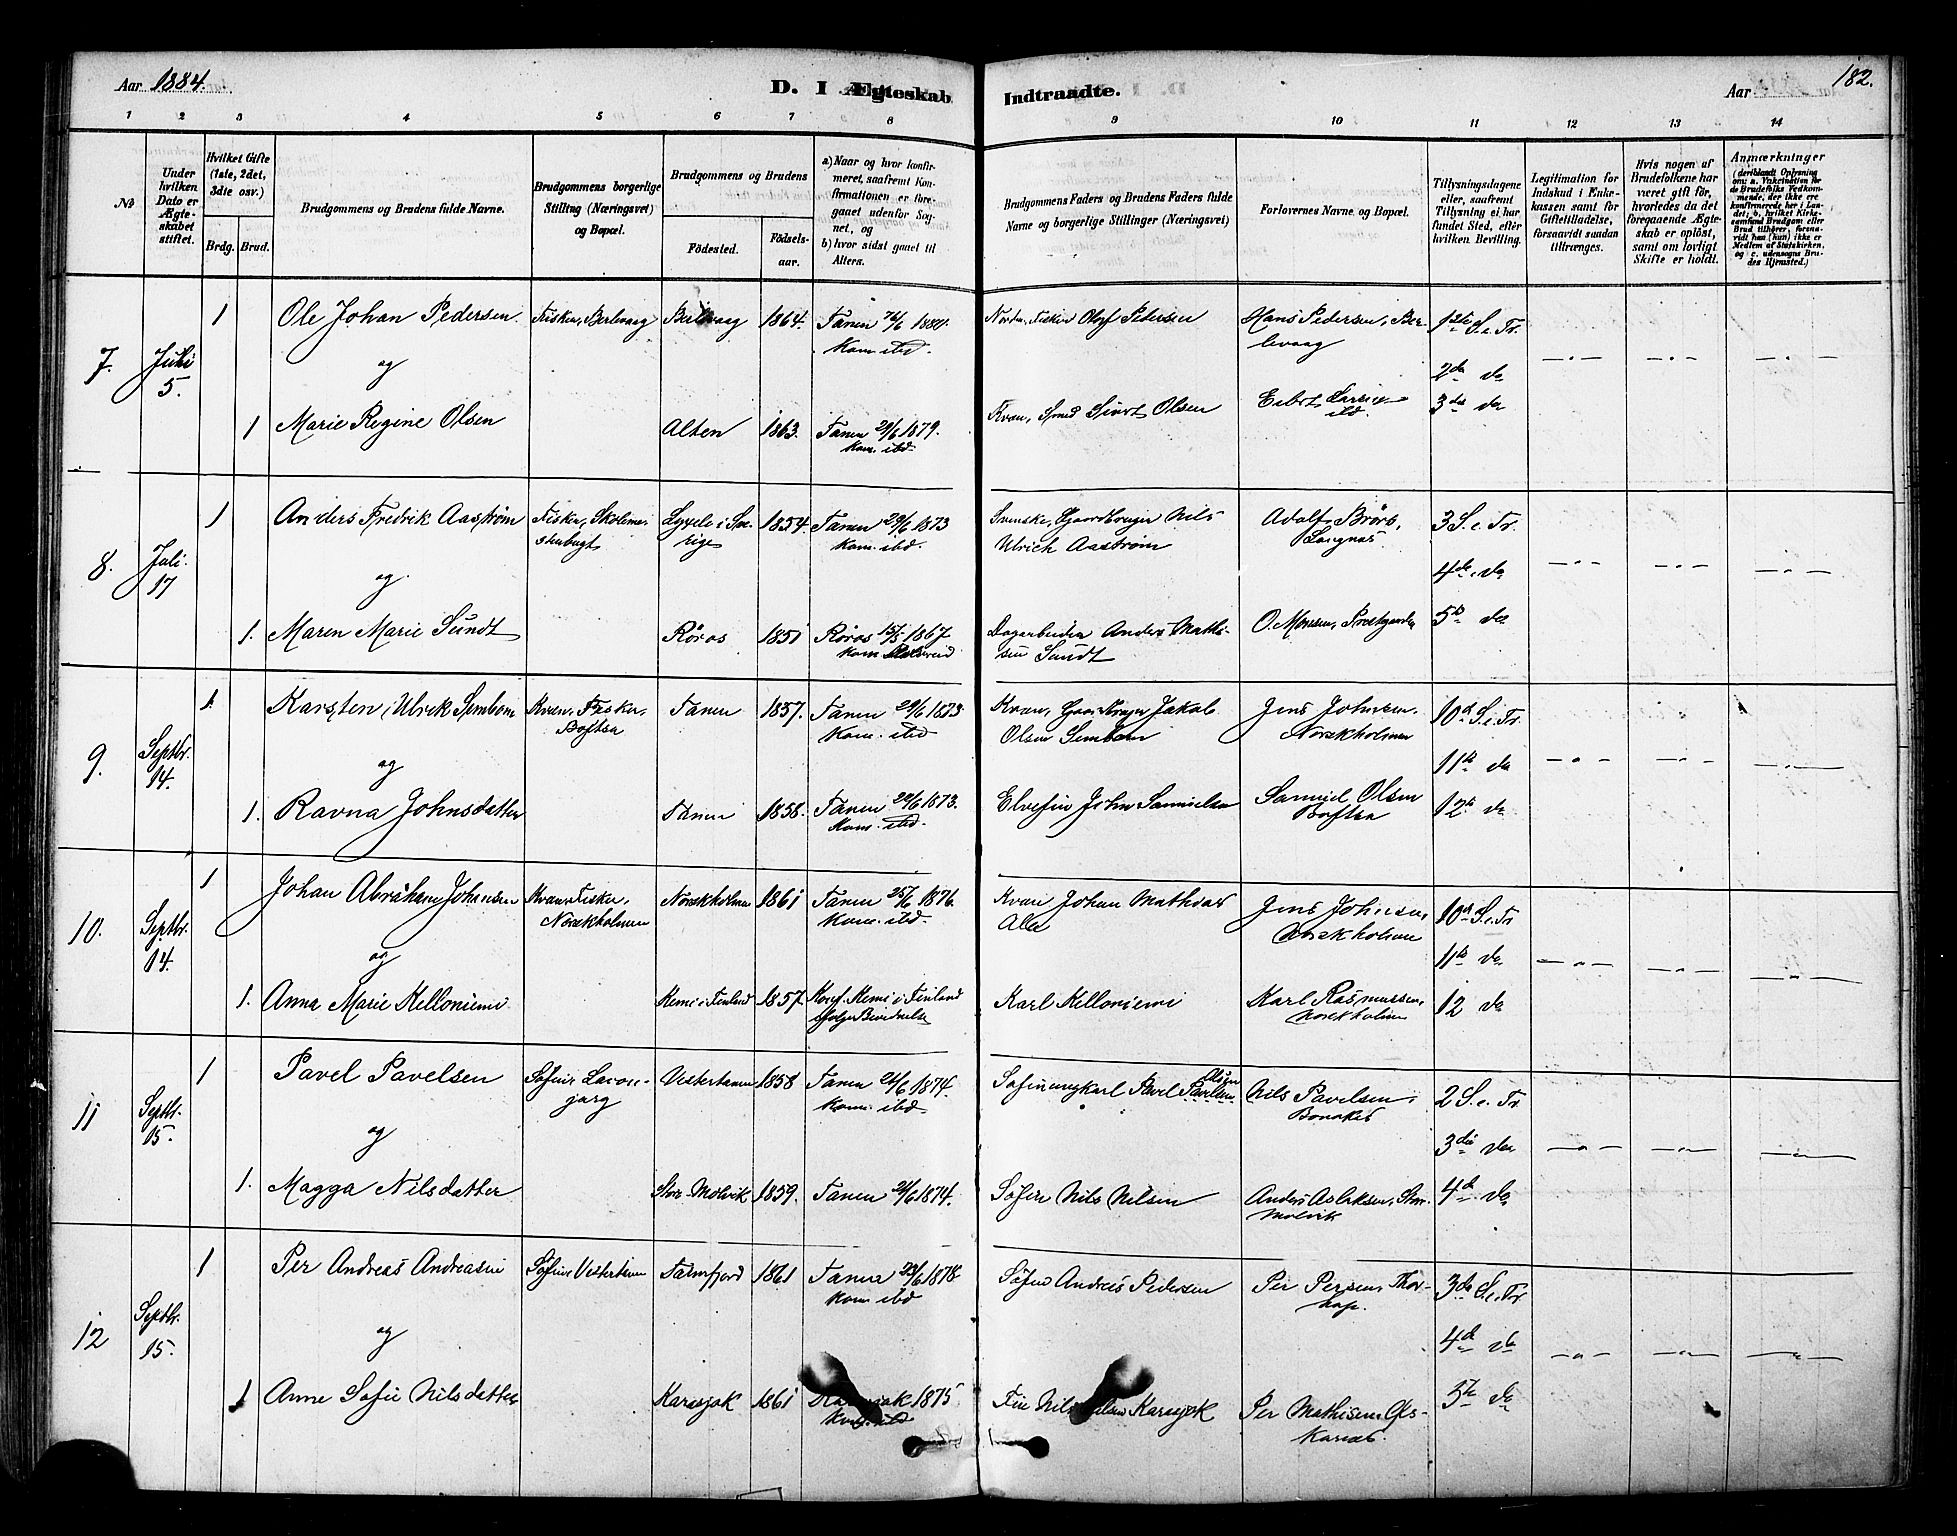 Aar 1884.
D. I Ægteskab
Indtraadte.
Aar
182.
1 2 3 4 5 6 7 8 9 10 11 12 13 14
No
Under hvilken Dato er Ægteskabet stiftet.
Hvilket Gifte (1ste, 2det, 3dte osv.)
Brdg. Brud.
Brudgommens og Brudens fulde Navne.
Brudgommens borgerlige Stilling (Næringsvei) og Bopæl.
Brudgommens og Brudens
Födested.
Födsels-aar.
a) Naar og hvor konfirmeret, saafremt Konfirmationen er foregaaet udenfor Sognet, og
b) hvor sidst gaaet til Alters.
Brudgommens Faders og Brudens Faders fulde Navne og borgerlige Stillinger (Næringsvei)
Forlovernes Navne og Bopæl.
Tillysningsdagene eller, saafremt Tillysning ei har fundet Sted, efter hvilken Bevilling.
Legitimation for Indskud i Enkekassen samt for Giftetilladelse, forsaavidt saadan tiltrænges.
Hvis nogen af Brudefolkene har været gift för, hvorledes da det foregaaende Ægteskab er oplöst, samt om lovligt Skifte er holdt.
Anmærkninger (deriblandt Oplysning om: a. Vakcination for de Brudefolks Vedkommende, der ikke ere konfirmerede her i Landet; b. hvilket Kirkesamfund Brudgom eller Brud tilhörer, forsaavidt han (hun) ikke er Medlem af Statskirken, og c. udensogns Brudes Hjemsted.)
7. Juli 5.
1 Ole Johan Pedersen Fisker, Berlevaag Berlevaag 1864. Tanen
Kom. ibd.
Fisker Olof Petersen Hans Pedersen, Berlevaag 1ste S. e. Tr.
og
2den do
1 Marie Regine Olsen Alten 1863. Tanen 29/6 1879.
Kom. ibd.
Kvæn, Smed Olsen
ibd. 3die do
8. Juli 17
1 Anders Fredrik Aastrøm Fisker, Lyxele i Sverige 1854. Tanen 29/6 1873
Kom. ibd.
Svenske, Gaardbruger Nils Ulrich Aastrøm Adolf Brörs, Langnæs. 3 S. e. Tr.
og
4de do
1. Maren Marie Sundt Röros 1851 Röros 1867.
Kom.
Dagarbeider Anders Mathisen Sundt O. Monsen, Prestgaarden 5te do
9. Septbr. 14.
1. Karsten Ulrik Sembom Kvæn, Fisker, Boftsa Tanen 1857. Tanen 29/6 1873
Kom. ibd
Kvæn, Gaardbruger Jakob Olsen Sembom Jens Johnsen, Norskholmen 10de S. e. Tr.
og
11te do
1. Ravna Johnsdatter Tanen 1858. Tanen 29/6 1873.
Kom. ibd.
Elvefin John Samuelsen Samuel Olsen Boftsa 12te do
10. Septbr. 14.
1 Johan Abraham Johansen Kvæn, Fisker, Norskholmen Norskholmen 1861 Tanen 25/6 1876.
Kom. ibd.
Kvæn Johan Mathias Jens Johnsen, Norskholmen 10de S. e. Tr
og
11te do
1. Anna Marie Kelloniemi Kemi i Finland 1857. Konf. Kemi i Finland ifølge Bevidnelse
Karl Kelloniemi Karl Rasmussen, Norskholmen 12 do
11 Septbr. 15.
1 Pavel Pavelsen Söfin, Vestertanen 1858 Tanen 1874.
Kom. ibd
Söfinungkarl Pavel Olsen Pavelsen Nils Pavelsen, Bonakas 2 S. e. Tr.
og
3die do
1. Magga Nilsdatter Stor Molvik 1859. Tanen 1874.
Söfin Nils Nilsen Anders Aslaksen, Stor Molvik 4de do
12 Septbr. 15.
1 Per Andreas Andreasen Söfin, Vestertanen Tarmfjord 1861 Tanen 23/6 1878.
Kom. ibd
Söfin Andreas Pedersen Per Persen, 3die S. e. Tr.
og
4de do
1 Anne Sofie Nilsdatter Karasjok 1861 Karasjok 1875
Kom. ibd
Fin Nils Nilsen Karasjok Per Mathisen, 5te do